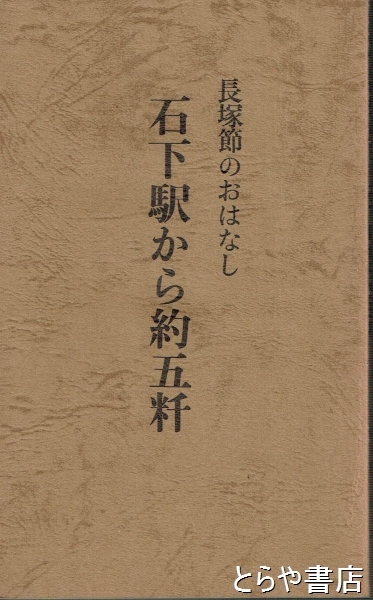 長塚節のおはなし
石下駅から約五粁
とらや書店